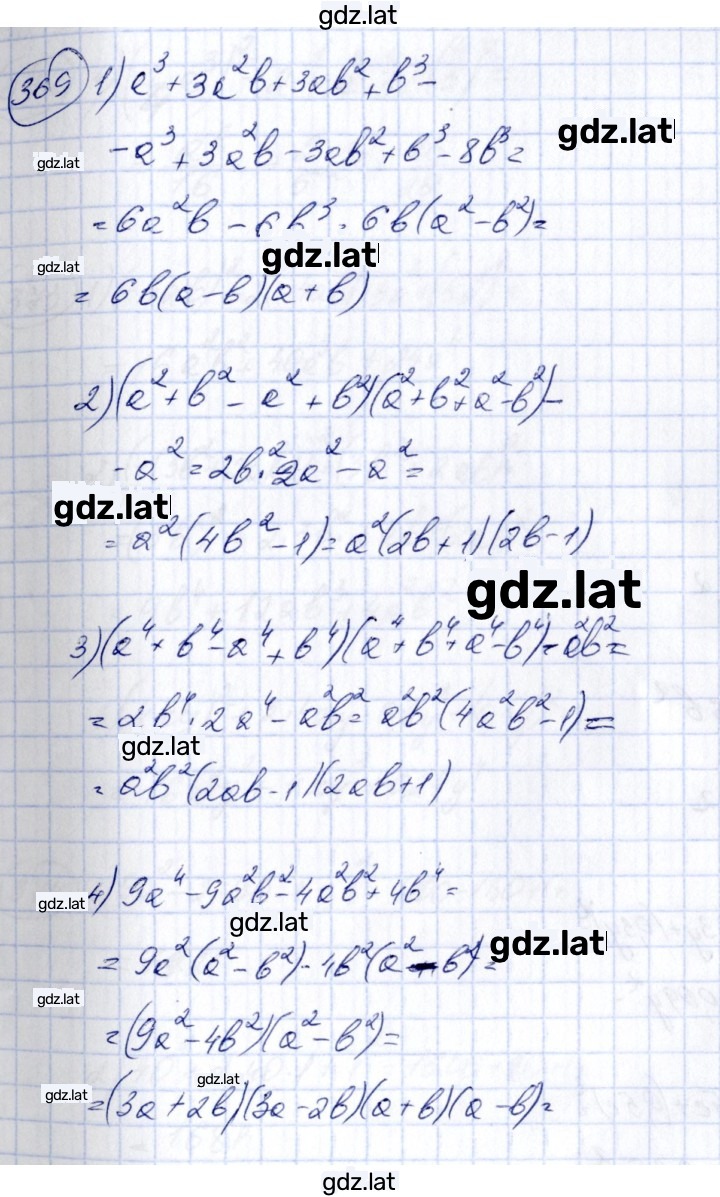 gdz.lat
369 1) a³+3a²b+3ab²+b³-
-a³+3a²b-3ab²+b³-8b³=
gdz.lat
gdz.lat
=6a²b-6b³=6b(a²-b²)=
gdz.lat
gdz.lat
= 6b(a-b)(a+b)
2)(a²+b²-a²+b²)(a²+b²+a²-b²)-
-a²=2b²·2a²-a²=
gdz.lat
=a²(4b²-1)=a²(2b+1)(2b-1)
gdz.lat
3)(a⁴+b⁴-a⁴+b⁴)(a⁴+b⁴+a⁴-b⁴)-a²b²=
=2b⁴·2a⁴-a²b²=a²b²(4a²b²-1)=
gdz.lat
=a²b²(2ab-1)(2ab+1)
4) 9a⁴-9a²b²-4a²b²+4b⁴=
gdz.lat
gdz.lat
gdz.lat
=9a²(a²-b²)-4b²(a²-b²)=
gdz.lat
=(9a²-4b²)(a²-b²)=
gdz.lat
gdz.lat
=(3a+2b)(3a-2b)(a+b)(a-b)=
gdz.lat